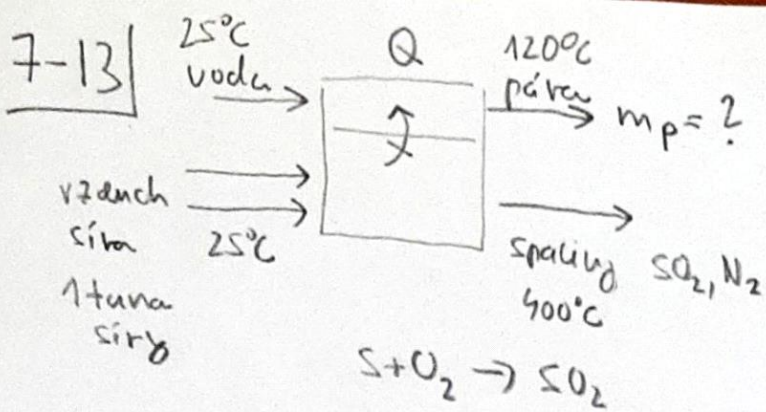 7-13
25°C
voda
Q
120°C
pára
mp = ?
vzduch
síra
25°C
1 tuna
síry
spaliny SO2, N2
400°C
S + O2 → SO2